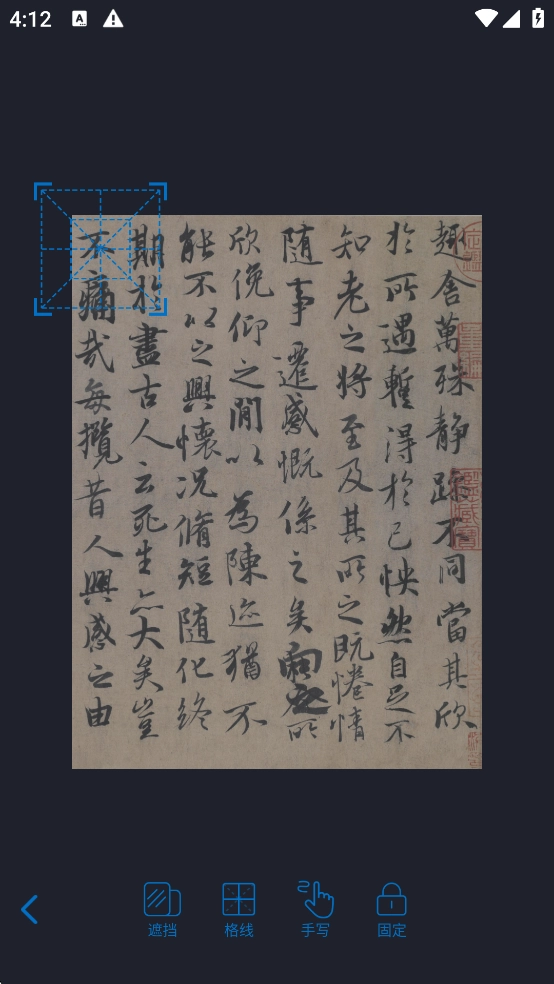 4:12
A
趣舍萬殊静躁不同當其欣
於所遇蹔得於己怏然自足不
知老之將至及其所之既惓情
随事遷感慨係之矣向之所
欣俛仰之閒以為陳迹猶不
能不以之興懷況脩短随化終
期於盡古人云死生亦大矣豈
不痛哉每攬昔人興感之由
遮挡 格线 手写 固定